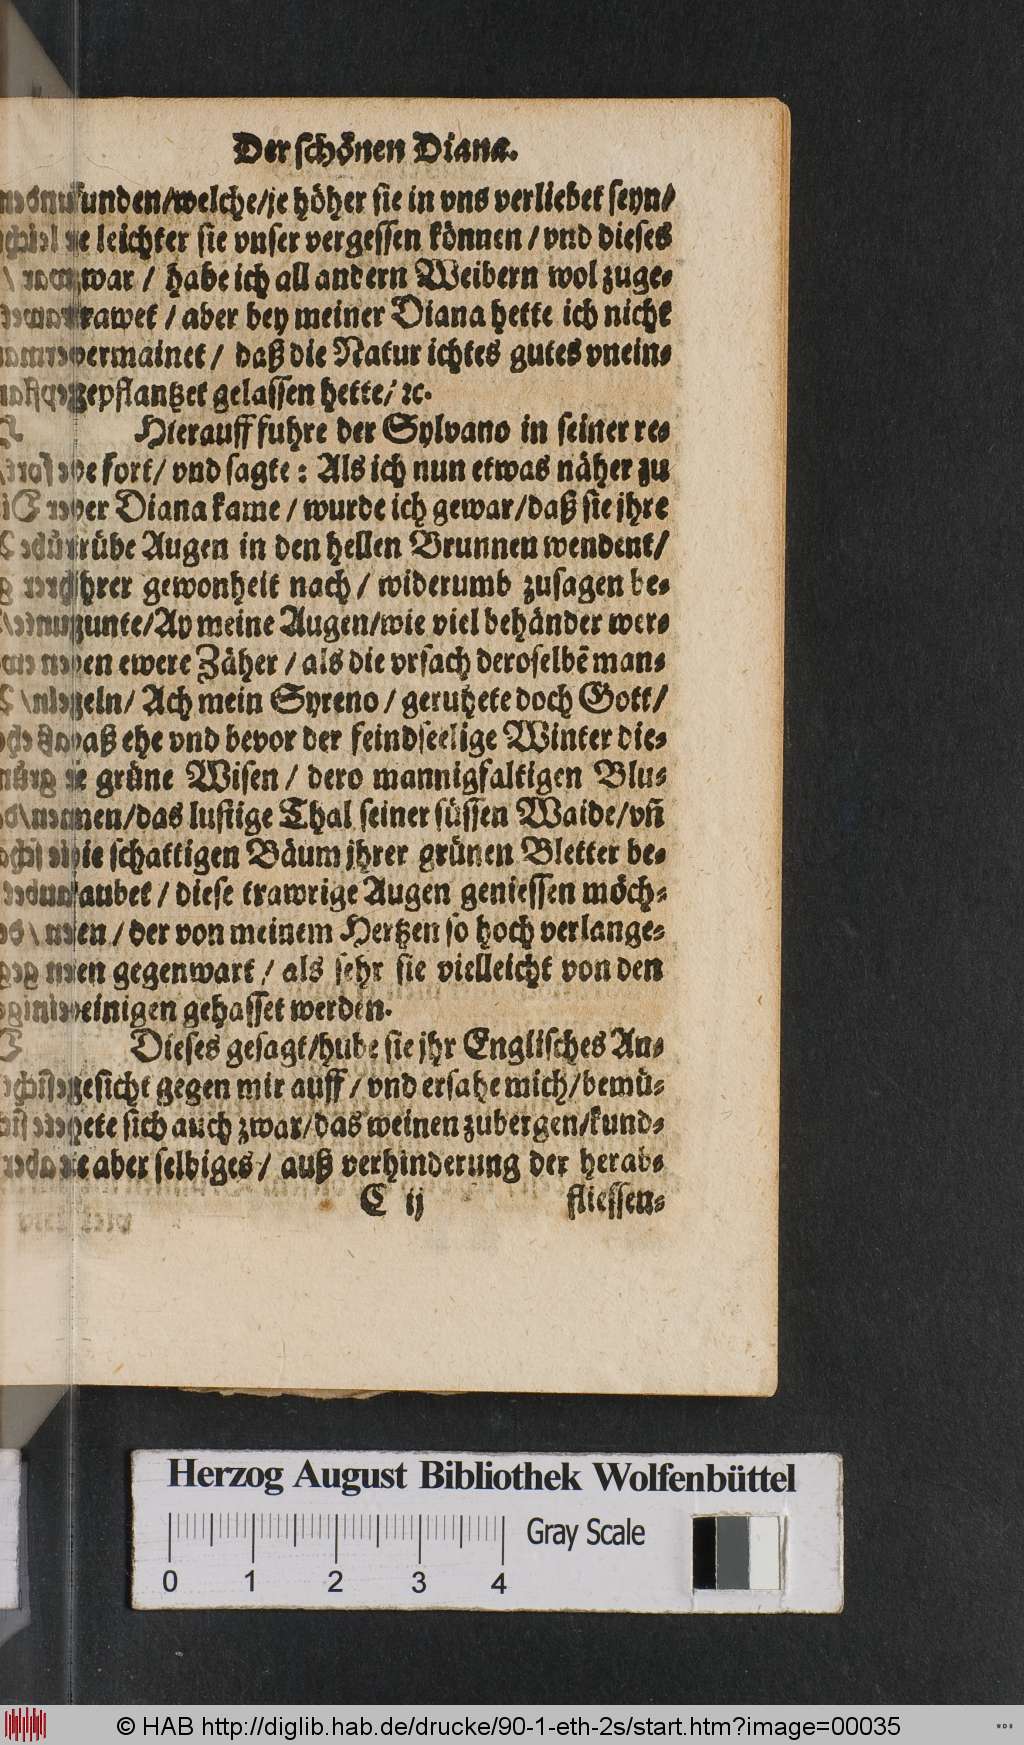 Der schönen Diana.
funden/welche/je höher sie in vns verliebet seyn/
je leichter sie vnser vergessen können / vnd dieses
zwar / habe ich all andern Weibern wol zuge-
trawet / aber bey meiner Diana hette ich nicht
vermainet / daß die Natur ichtes gutes vnein-
gepflantzet gelassen hette/ ꝛc.
Hierauff fuhre der Sylvano in seiner re-
de fort/ vnd sagte : Als ich nun etwas näher zu
der Diana kame / wurde ich gewar/daß sie jhre
trübe Augen in den hellen Brunnen wendent/
jhrer gewonheit nach / widerumb zusagen be-
gunte/Ay meine Augen/wie viel behänder wer-
den ewere Zäher / als die vrsach deroselbē man-
geln/ Ach mein Syreno / geruhete doch Gott/
daß ehe vnd bevor der feindseelige Winter die-
se grüne Wisen / dero mannigfaltigen Blu-
men/das lustige Thal seiner süssen Waide/vñ
die schattigen Bäum jhrer grünen Bletter be-
raubet / diese trawrige Augen geniessen möch-
ten / der von meinem Hertzen so hoch verlange-
ten gegenwart / als sehr sie vielleicht von den
deinigen gehasset werden.
Dieses gesagt/hube sie jhr Englisches An-
gesicht gegen mir auff / vnd ersahe mich/bemü-
hete sich auch zwar/das weinen zubergen/kund-
te aber selbiges / auß verhinderung der herab-
C ij fliessen-
Herzog August Bibliothek Wolfenbüttel
Gray Scale
0 1 2 3 4
© HAB http://diglib.hab.de/drucke/90-1-eth-2s/start.htm?image=00035